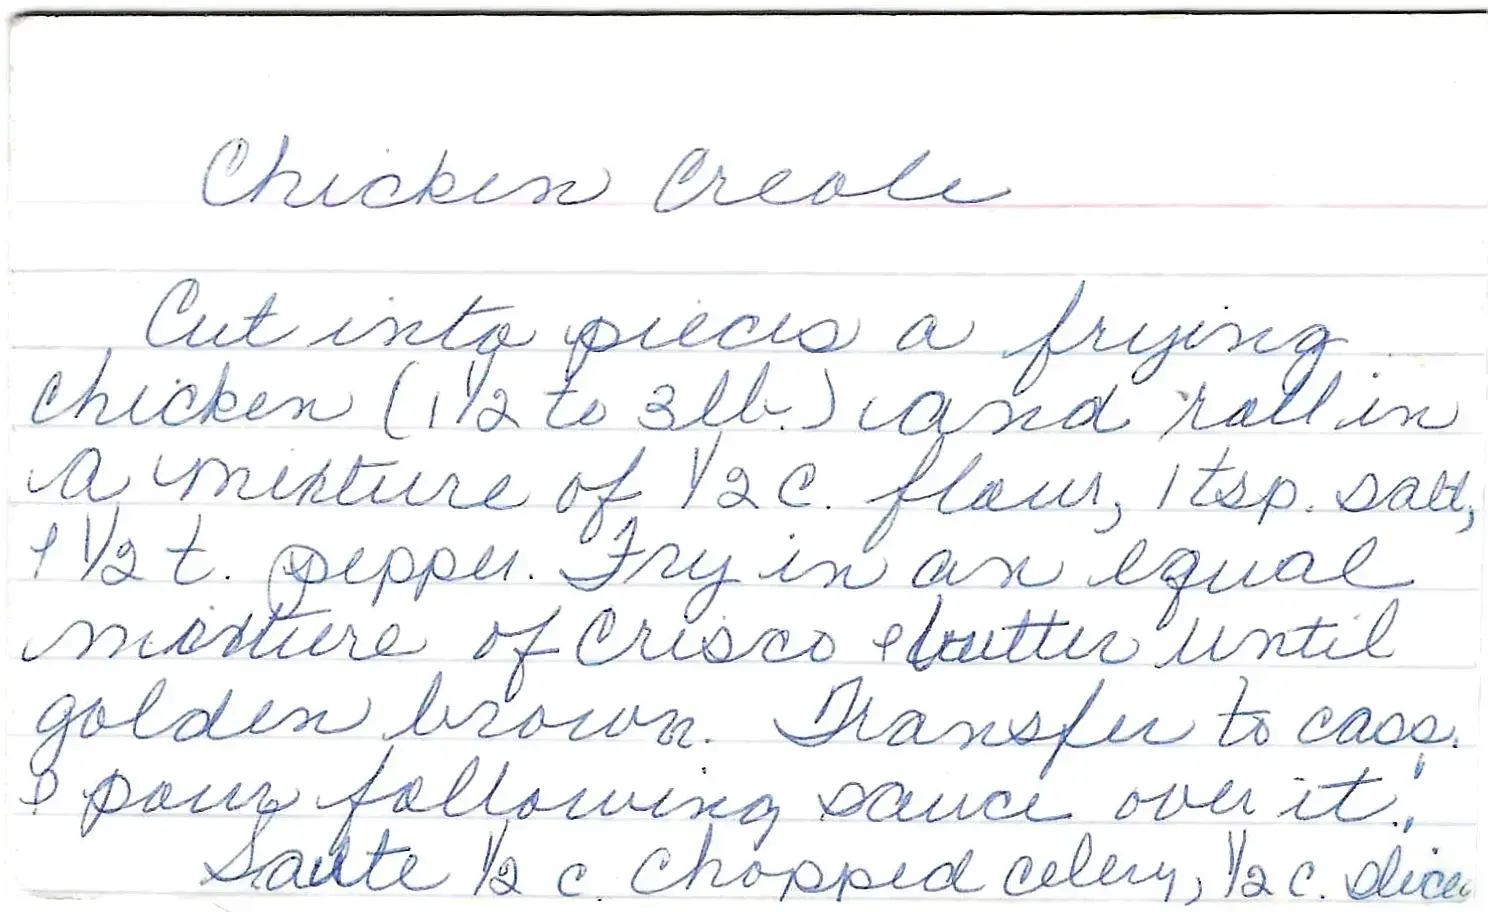 Chicken Creole
Cut into pieces a frying
chicken (1 1/2 to 3 lb.) and roll in
a mixture of 1/2 c. flour, 1 tsp. salt,
& 1/2 t. pepper. Fry in an equal
mixture of Crisco & butter until
golden brown. Transfer to cass.
& pour following sauce over it:
Saute 1/2 c. chopped celery, 1/2 c. slice